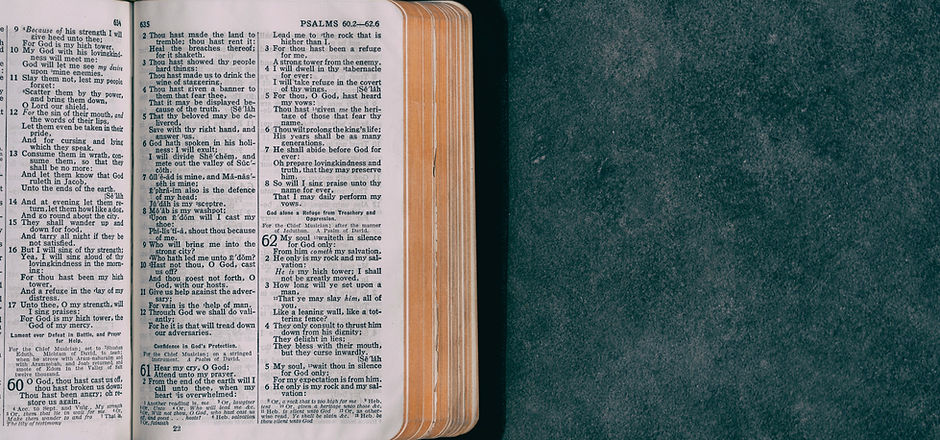 634
9 Because of his strength I will
give heed unto thee;
For God is my high tower.
10 My God with his lovingkind-
ness will meet me:
God will let me see my desire
upon mine enemies.
11 Slay them not, lest my people
forget:
Scatter them by thy power,
and bring them down,
O Lord our shield.
12 For the sin of their mouth, and
the words of their lips,
Let them even be taken in their
pride,
And for cursing and lying
which they speak.
13 Consume them in wrath, con-
sume them, so that they
shall be no more:
And let them know that God
ruleth in Jacob,
Unto the ends of the earth.
[Sē´lăh
14 And at evening let them re-
turn, let them howl like a dog,
And go round about the city.
15 They shall wander up and
down for food,
And tarry all night if they be
not satisfied.
16 But I will sing of thy strength;
Yea, I will sing aloud of thy
lovingkindness in the morn-
ing:
For thou hast been my high
tower,
And a refuge in the day of my
distress.
17 Unto thee, O my strength, will
I sing praises:
For God is my high tower, the
God of my mercy.
Lament over Defeat in Battle, and Prayer
for Help.
For the Chief Musician; set to Shushan
Eduth. Michtam of David, to teach;
when he strove with Aram-naharaim and
with Aram-zobah, and Joab returned, and
smote of Edom in the Valley of Salt
twelve thousand.
60 O God, thou hast cast us off,
thou hast broken us down;
Thou hast been angry; oh re-
store us again.
635
PSALMS 60.2—62.6
2 Thou hast made the land to
tremble; thou hast rent it:
Heal the breaches thereof;
for it shaketh.
3 Thou hast showed thy people
hard things:
Thou hast made us to drink the
wine of staggering.
4 Thou hast given a banner to
them that fear thee,
That it may be displayed be-
cause of the truth. [Sē´lăh
5 That thy beloved may be de-
livered,
Save with thy right hand, and
answer us.
6 God hath spoken in his holi-
ness: I will exult;
I will divide Shē´chĕm, and
mete out the valley of Sŭc´-
cŏth.
7 Gĭl´ē-ăd is mine, and Mă-năs´-
sēh is mine;
Ē´phrā-ĭm also is the defence
of my head;
Jū´dăh is my sceptre.
8 Mō´ăb is my washpot;
Upon Ē´dŏm will I cast my
shoe:
Phĭ-lĭs´tĭ-ă, shout thou because
of me.
9 Who will bring me into the
strong city?
Who hath led me unto Ē´dŏm?
10 Hast not thou, O God, cast
us off?
And thou goest not forth, O
God, with our hosts.
11 Give us help against the adver-
sary;
For vain is the help of man.
12 Through God we shall do vali-
antly;
For he it is that will tread down
our adversaries.
Confidence in God's Protection.
For the Chief Musician; on a stringed
instrument. A Psalm of David.
61 Hear my cry, O God;
Attend unto my prayer.
2 From the end of the earth will I
call unto thee, when my
heart is overwhelmed:
22
Lead me to the rock that is
higher than I.
3 For thou hast been a refuge
for me,
A strong tower from the enemy.
4 I will dwell in thy tabernacle
for ever:
I will take refuge in the covert
of thy wings. [Sē´lăh
5 For thou, O God, hast heard
my vows:
Thou hast given me the heri-
tage of those that fear thy
name.
6 Thou wilt prolong the king's life;
His years shall be as many
generations.
7 He shall abide before God for
ever:
Oh prepare lovingkindness and
truth, that they may preserve
him.
8 So will I sing praise unto thy
name for ever,
That I may daily perform my
vows.
God alone a Refuge from Treachery and
Oppression.
For the Chief Musician; after the manner
of Jeduthun. A Psalm of David.
62 My soul waiteth in silence
for God only:
From him cometh my salvation.
2 He only is my rock and my sal-
vation:
He is my high tower; I shall
not be greatly moved.
3 How long will ye set upon a
man,
That ye may slay him, all of
you,
Like a leaning wall, like a tot-
tering fence?
4 They only consult to thrust him
down from his dignity;
They delight in lies;
They bless with their mouth,
but they curse inwardly.
[Sē´lăh
5 My soul, wait thou in silence
for God only;
For my expectation is from him.
6 He only is my rock and my sal-
vation: